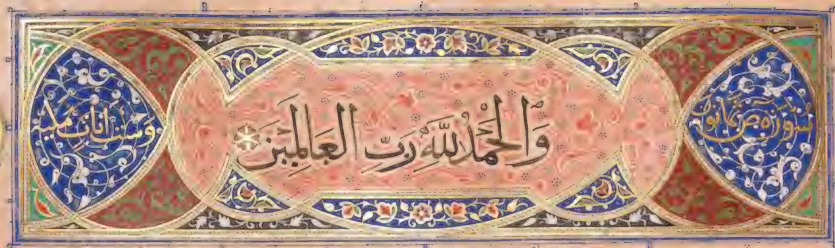 سورة ص ثمانون
وَالْحَمْدُ لِلَّهِ رَبِّ الْعَالَمِينَ
وست ايات مكية